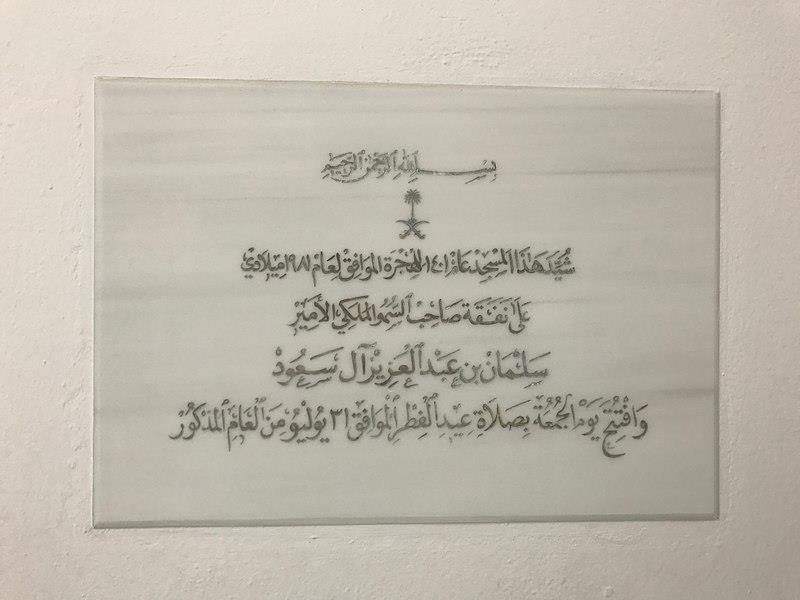 بسم الله الرحمن الرحيم
شُيِّدَ هَذَا المَسْجِد عَامْ ١٤٠١ للهِجْرَة الموَافِقْ لِعَامْ ١٩٨١ مِيلَادي
عَلَى نَفَقَة صَاحِبْ السُّمُو المَلَكِي الأَمِيرْ
سَلْمَانْ بن عَبْد العَزِيزْ آل سَعُودْ
وَافْتُتِحَ يَوْمَ الجُمُعَة بِصَلَاةِ عِيدِ الْفِطْرِ الْمُوَافِقْ ٣١ يُولْيُو مِنَ الْعَامِ الْمَذْكُورْ